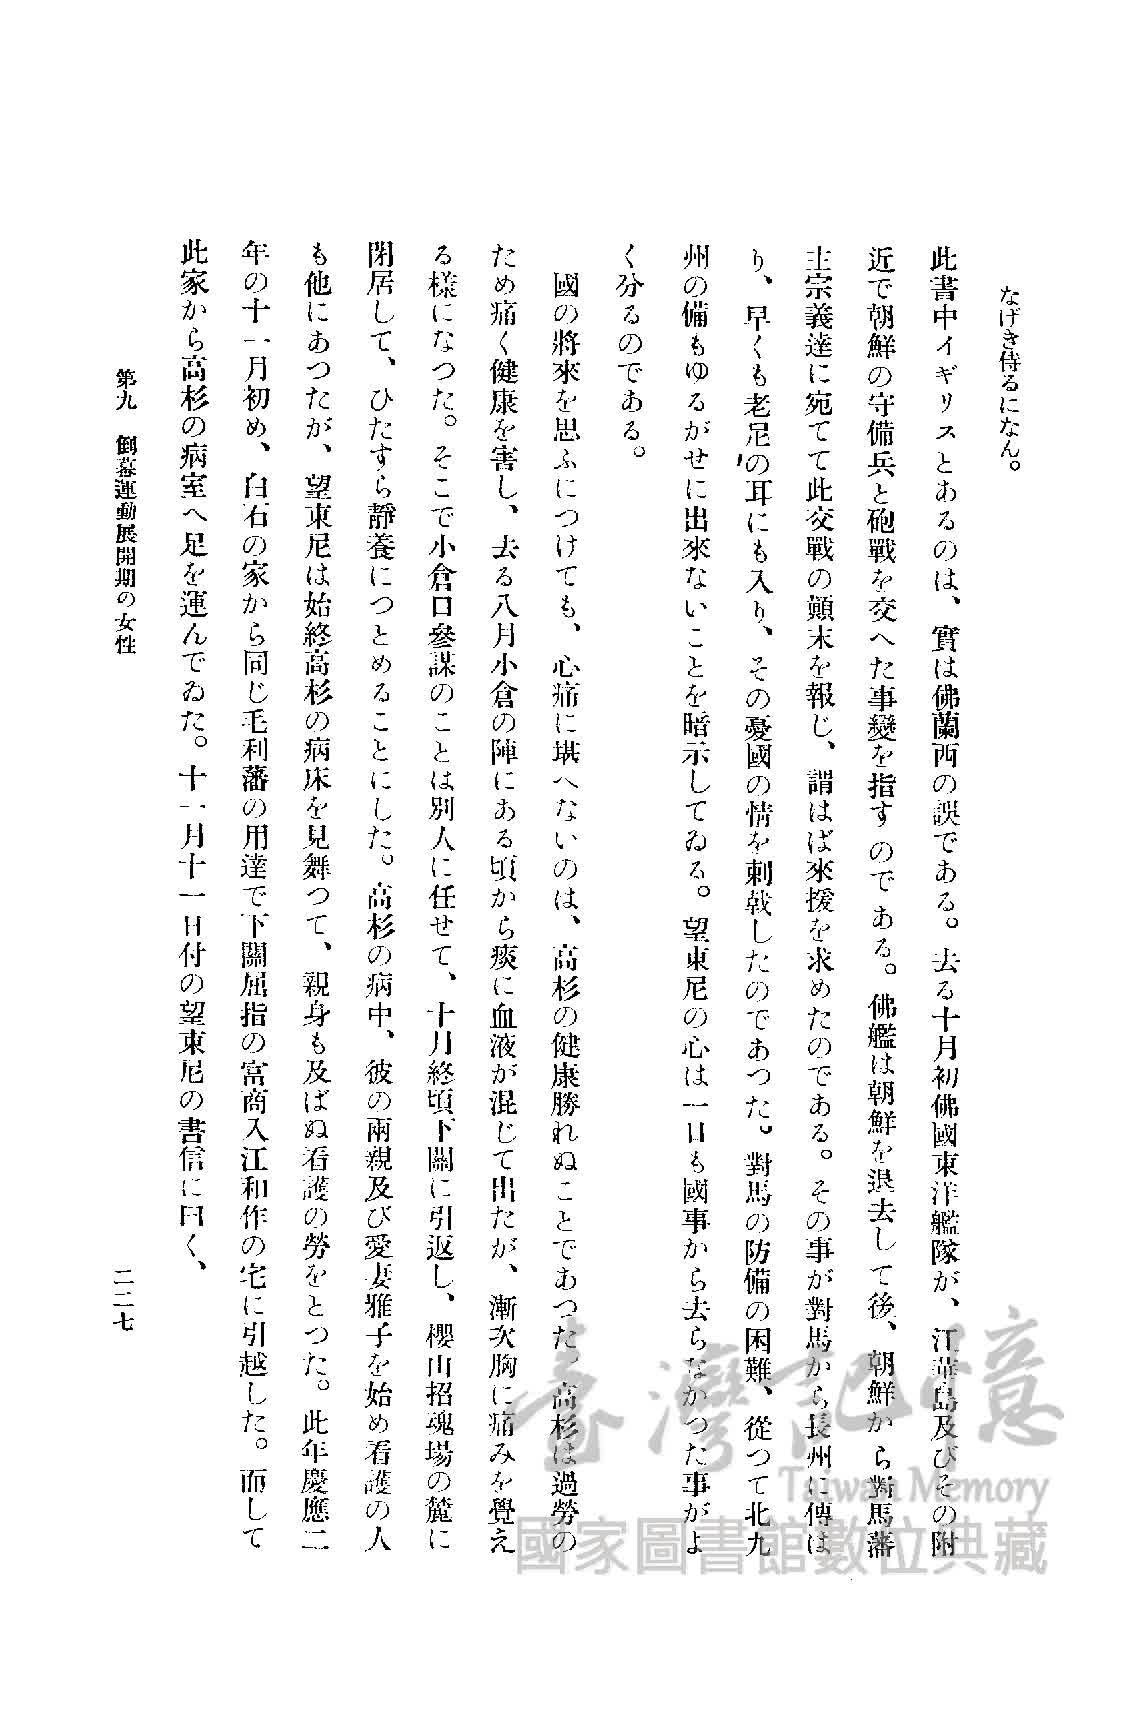 なげき侍るになん。
此書中イギリスとあるのは、實は佛蘭西の誤である。去る十月初佛國東洋艦隊が、江華島及びその附
近で朝鮮の守備兵と砲戰を交へた事變を指すのである。佛艦は朝鮮を退去して後、朝鮮から對馬藩
主宗義達に宛てて此交戰の顚末を報じ、謂はば來援を求めたのである。その事が對馬から長州に傳は
り、早くも老尼の耳にも入り、その憂國の情を刺戟したのであつた。對馬の防備の困難、從つて北九
州の備もゆるがせに出來ないことを暗示してゐる。望東尼の心は一日も國事から去らなかつた事がよ
く分るのである。
國の將來を思ふにつけても、心痛に堪へないのは、高杉の健康勝れぬことであつた。高杉は過勞の
ため痛く健康を害し、去る八月小倉の陣にある頃から痰に血液が混じて出たが、漸次胸に痛みを覺え
る樣になつた。そこで小倉口參謀のことは別人に任せて、十月終頃下關に引返し、櫻山招魂場の麓に
閉居して、ひたすら靜養につとめることにした。高杉の病中、彼の兩親及び愛妻雅子を始め看護の人
も他にあつたが、望東尼は始終高杉の病床を見舞つて、親身も及ばぬ看護の勞をとつた。此年慶應二
年の十一月初め、白石の家から同じ毛利藩の用達で下關屈指の富商入江和作の宅に引越した。而して
此家から高杉の病室へ足を運んでゐた。十一月十一日付の望東尼の書信に曰く、
第九 倒幕運動展開期の女性
二二七
臺灣記憶
Taiwan Memory
國家圖書館數位典藏